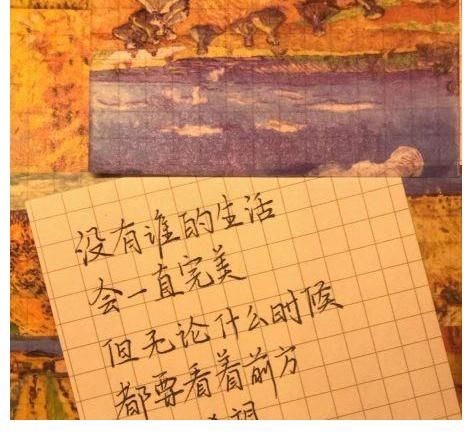 没有谁的生活
会一直完美
但无论什么时候
都要看着前方